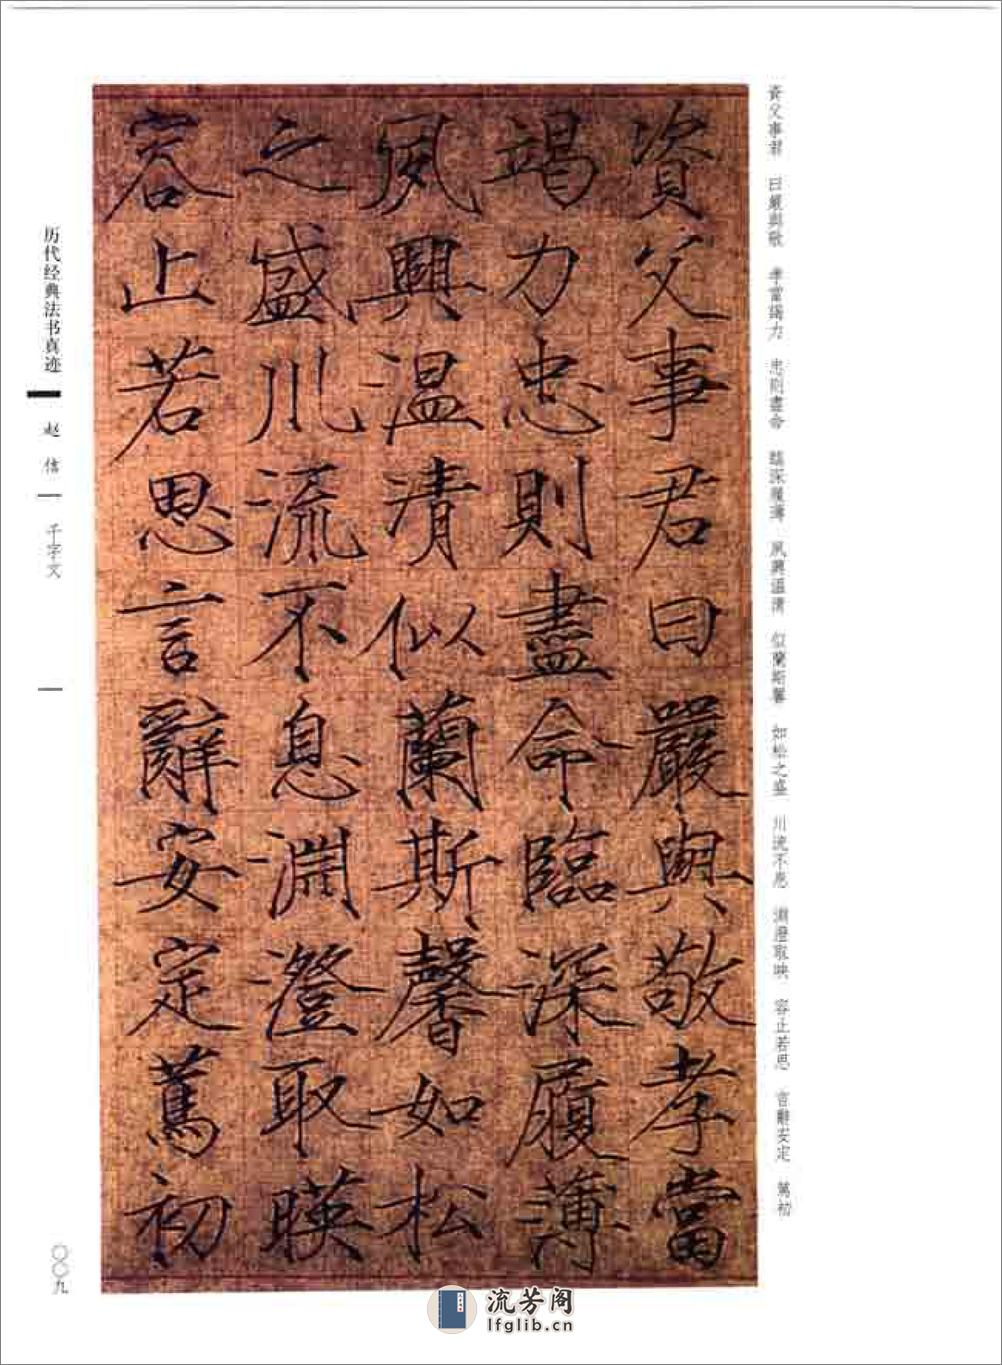 資父事君 曰嚴與敬 孝當竭力 忠則盡命 臨深履薄 夙興溫凊 似蘭斯馨 如松之盛 川流不息 淵澄取映 容止若思 言辭安定 篤初
資父事君曰嚴與敬孝當
竭力忠則盡命臨深履薄
夙興温清似蘭斯馨如松
之盛川流不息淵澄取暎
容止若思言辭安定篤初
历代经典法书真迹
赵佶
千字文
〇〇九
流芳阁
lfglib.cn